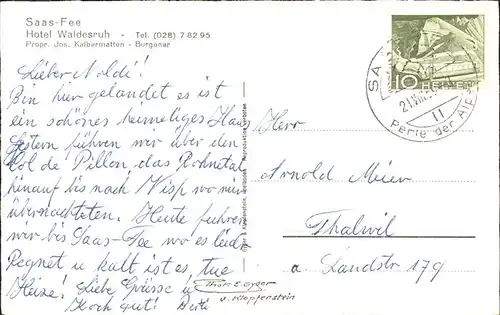 Saas-Fee
Hotel Waldesruh - Tel. (028) 7 82 95
Propr. Jos. Kalbermatten - Burgener
Lieber Noldi!
Bin hier gelandet es ist
ein schönes heimeliges Haus
Gestern führen wir über den
Col de Pillon das Rohnetal
hinauf bis nach Visp wo wir
übernachteten. Heute fuhren
wir bis Saas-Fee wo es leider
Regnet u kalt ist es, tue
Heize! Liebe Grüsse u
Koch gut!
v. Klopfenstein
Herr
Arnold Meier
Thalwil
a. Landstr 179
10 HELVETIA
SAAS
21.VIII
11
Perle der Alpen
Klopfenstein, Adelboden Reproduktion verboten